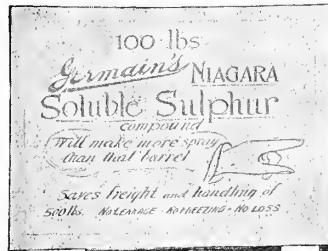 100 lbs
Germain's NIAGARA
Soluble Sulphur
compound
will make more spray
than that barrel
Saves freight and handling of
500 lbs. NO LEAKAGE - NO FREEZING - NO LOSS